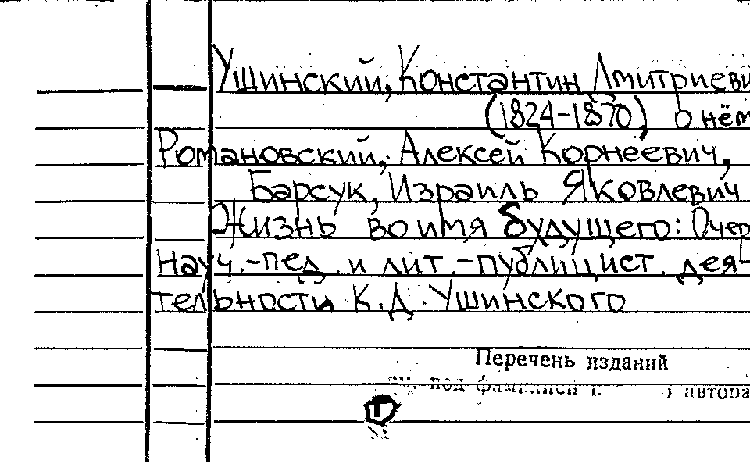 Ушинский, Константин Дмитриеви
(1824-1870) о нём
Романовский, Алексей Корнеевич,
Барсук, Израиль Яковлевич
Жизнь во имя будущего: Очер
науч.-пед. и лит.-публицист. дея-
тельности К.Д. Ушинского
Перечень изданий
под фамилией автора
Т